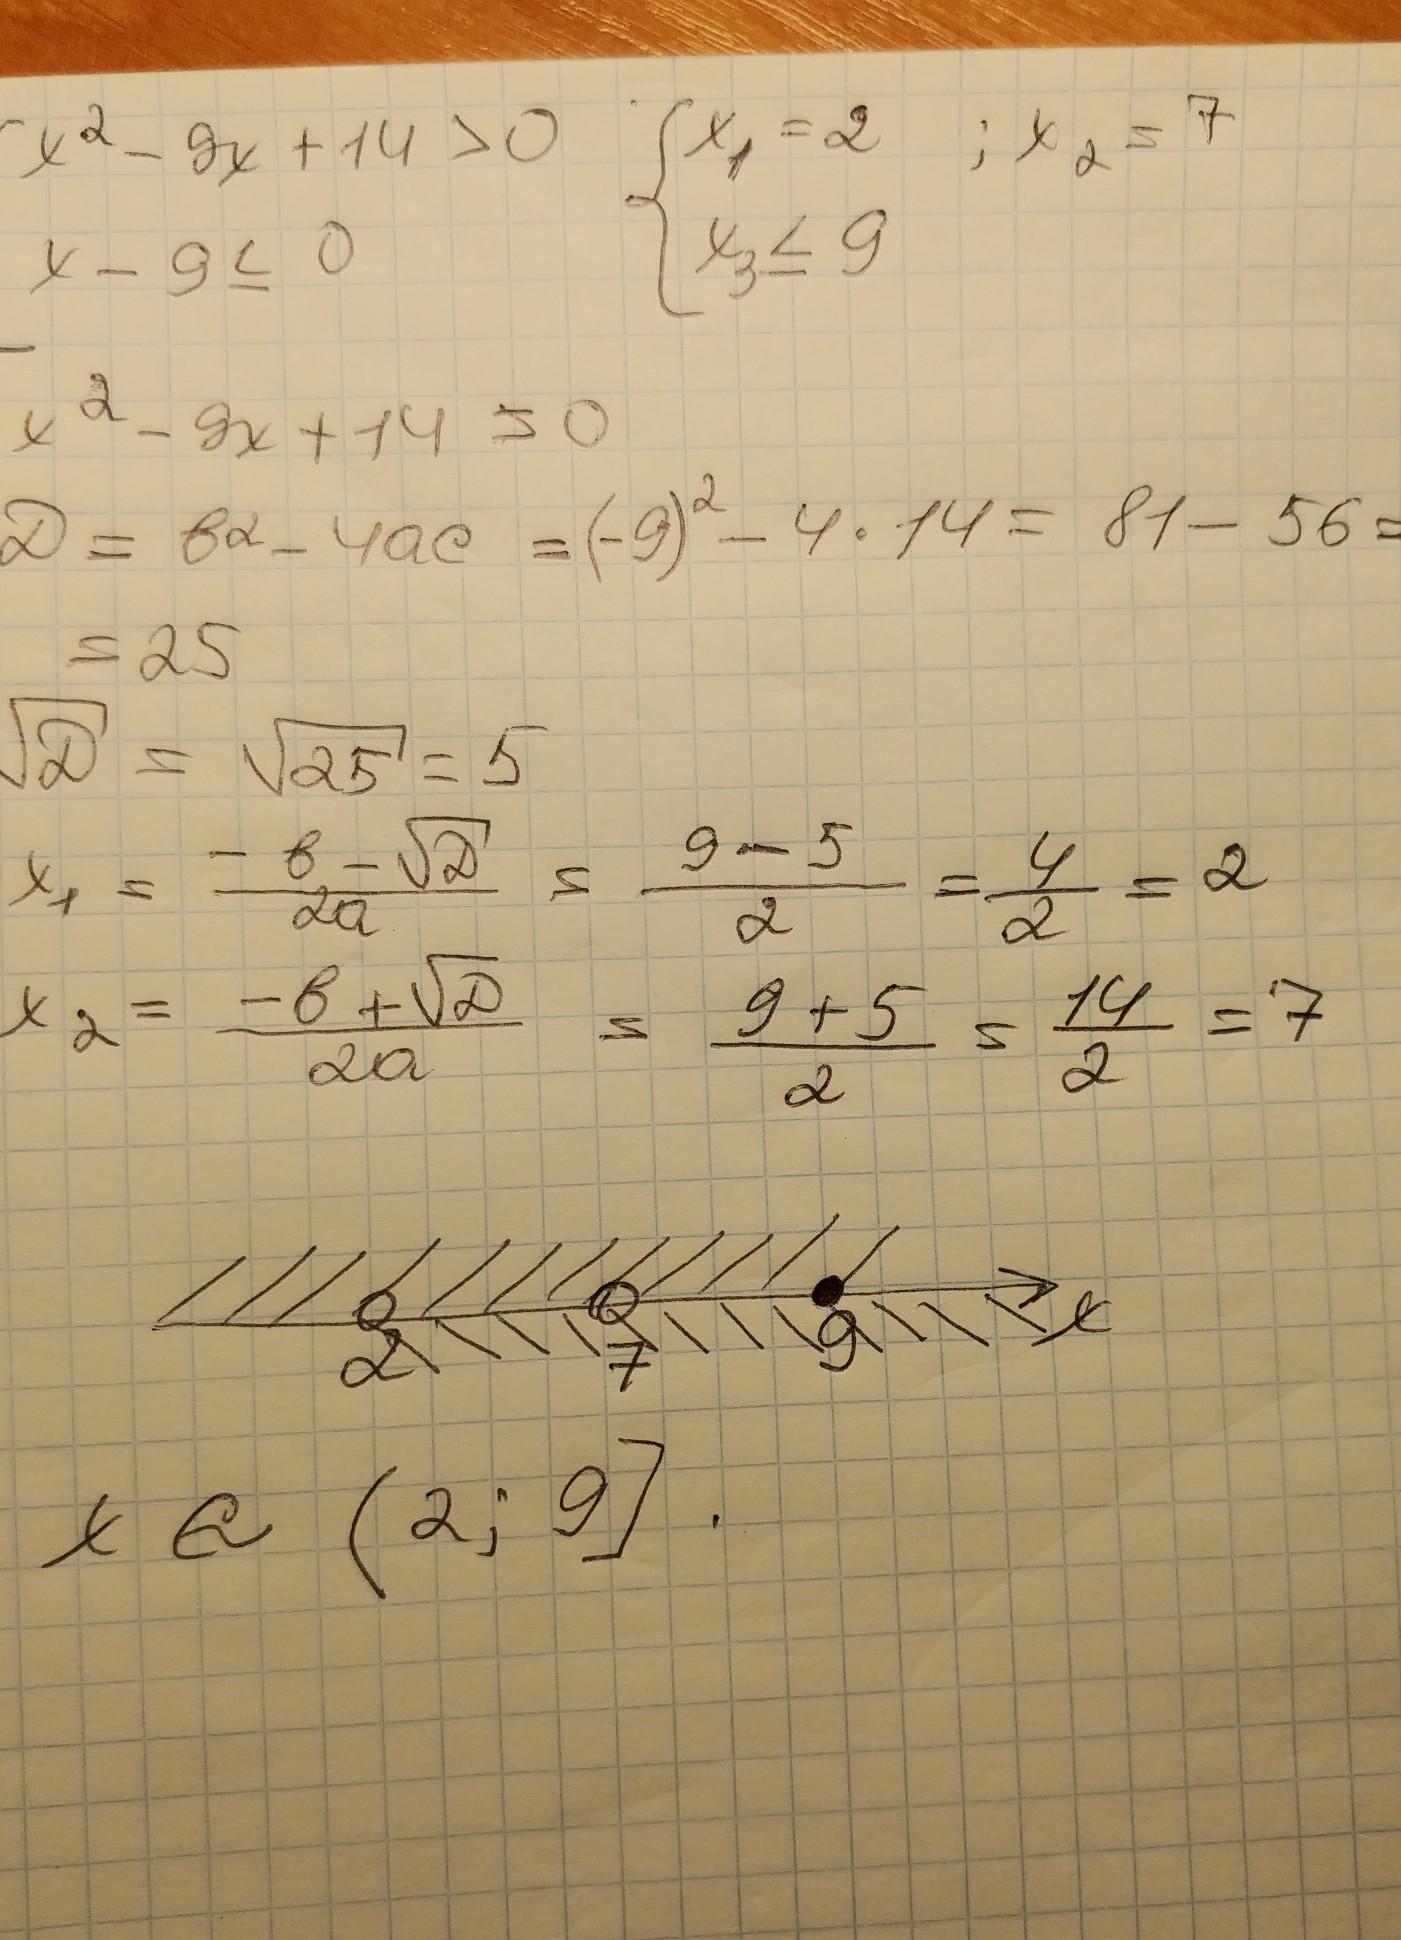 { x² - 9x + 14 > 0 { x₁ = 2 ; x₂ = 7
x - 9 ≤ 0 x₃ ≤ 9
x² - 9x + 14 = 0
D = b² - 4ac = (-9)² - 4 · 14 = 81 - 56 =
= 25
√D = √25 = 5
x₁ = (-b - √D)/2a = (9 - 5)/2 = 4/2 = 2
x₂ = (-b + √D)/2a = (9 + 5)/2 = 14/2 = 7
2 7 9 x
x ∈ (2; 9].